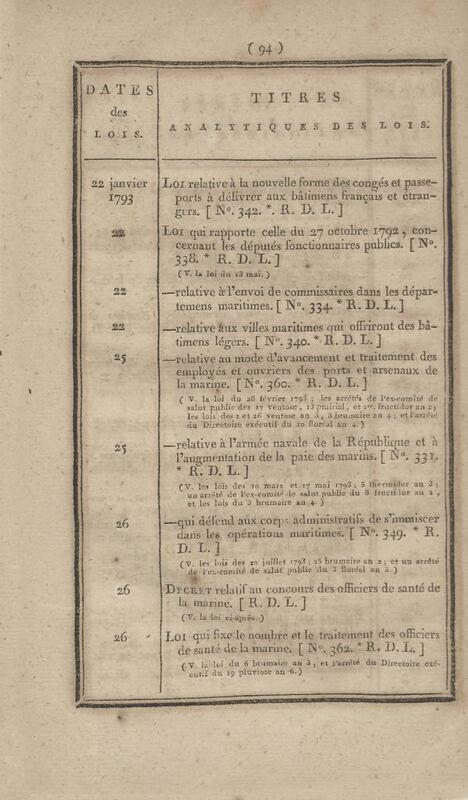 ( 94 )
DATES
des
LOIS.
TITRES
ANALYTIQUES DES LOIS.
22 janvier
1793
LOI relative à la nouvelle forme des congés et passe-
ports à délivrer aux bâtimens français et étran-
gers. [ N°. 342. *. R. D. L. ]
22
LOI qui rapporte celle du 27 octobre 1792, con-
cernant les députés fonctionnaires publics. [ N°.
338. * R. D. L. ]
( V. la loi du 13 mai.)
22
—relative à l'envoi de commissaires dans les dépar-
temens maritimes. [ N°. 334. * R. D. L. ]
22
—relative aux villes maritimes qui offriront des bâ-
timens légers. [ N°. 340. * R. D. L. ]
25
—relative au mode d'avancement et traitement des
employés et ouvriers des ports et arsenaux de
la marine. [ N°. 360. * R. D. L. ]
( V. la loi du 28 février 1793 ; les arrêtés de l'ex-comité de
salut public des 17 ventose, 13 prairial, et 1er. fructidor an 2;
les lois des 2 et 26 ventose an 3, 3 brumaire an 4; et l'arrêté
du Directoire exécutif du 10 floréal an 4.)
25
—relative à l'armée navale de la République et à
l'augmentation de la paie des marins. [ N°. 331.
* R. D. L. ]
(V. les lois des 10 mars et 17 mai 1793 ; 5 thermidor an 3 ;
un arrêté de l'ex-comité de salut public du 8 fructidor an 2 ,
et les lois du 3 brumaire an 4.)
26
—qui défend aux corps administratifs de s'immiscer
dans les opérations maritimes. [ N°. 349. * R.
D. L. ]
( V. les lois des 20 juillet 1793 ; 25 brumaire an 2 ; et un arrêté
de l'ex-comité de salut public du 3 floréal an 3.)
26
DÉCRET relatif au concours des officiers de santé de
la marine. [ R. D. L. ]
(V. la loi ci-après.)
26
LOI qui fixe le nombre et le traitement des officiers
de santé de la marine. [ N°. 362. * R. D. L. ]
(V. la loi du 6 brumaire an 3, et l'arrêté du Directoire exé-
cutif du 19 pluviose an 6.)